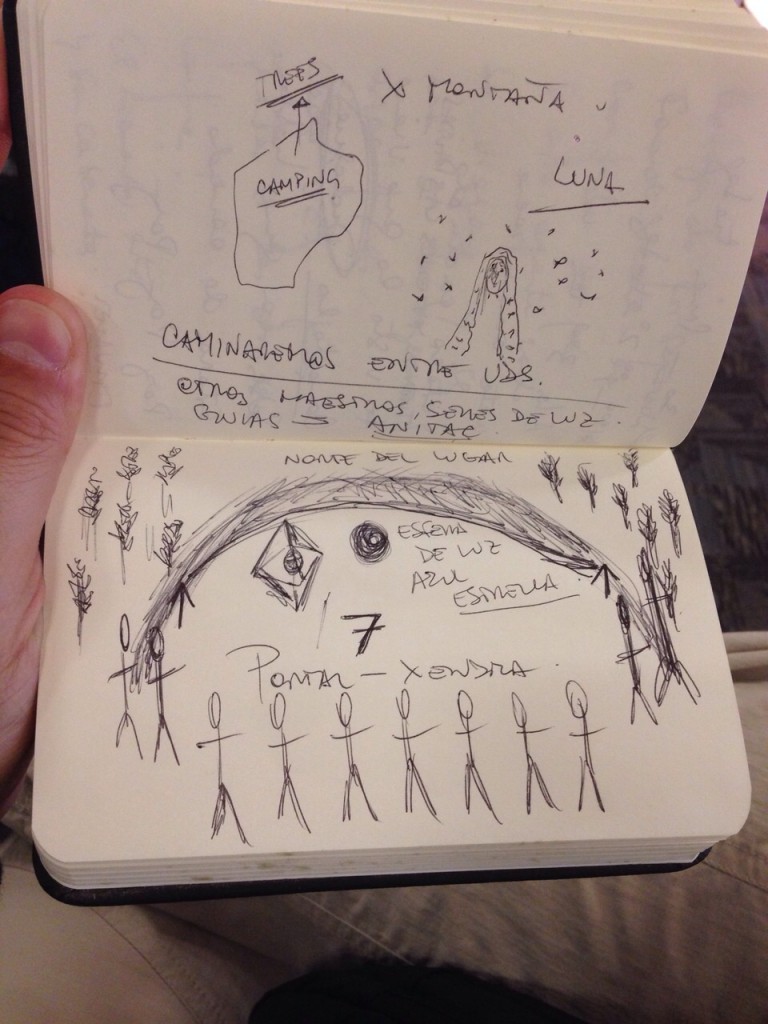 TREES
X MONTAÑA
CAMPING
LUNA
CAMINAREMOS ENTRE UDS.
OTROS MAESTROS, SERES DE LUZ
GUIAS = ANITAC
NORTE DEL LUGAR
ESFERA
DE LUZ
AZUL
ESTRELLA
7
PORTAL - XENDRA